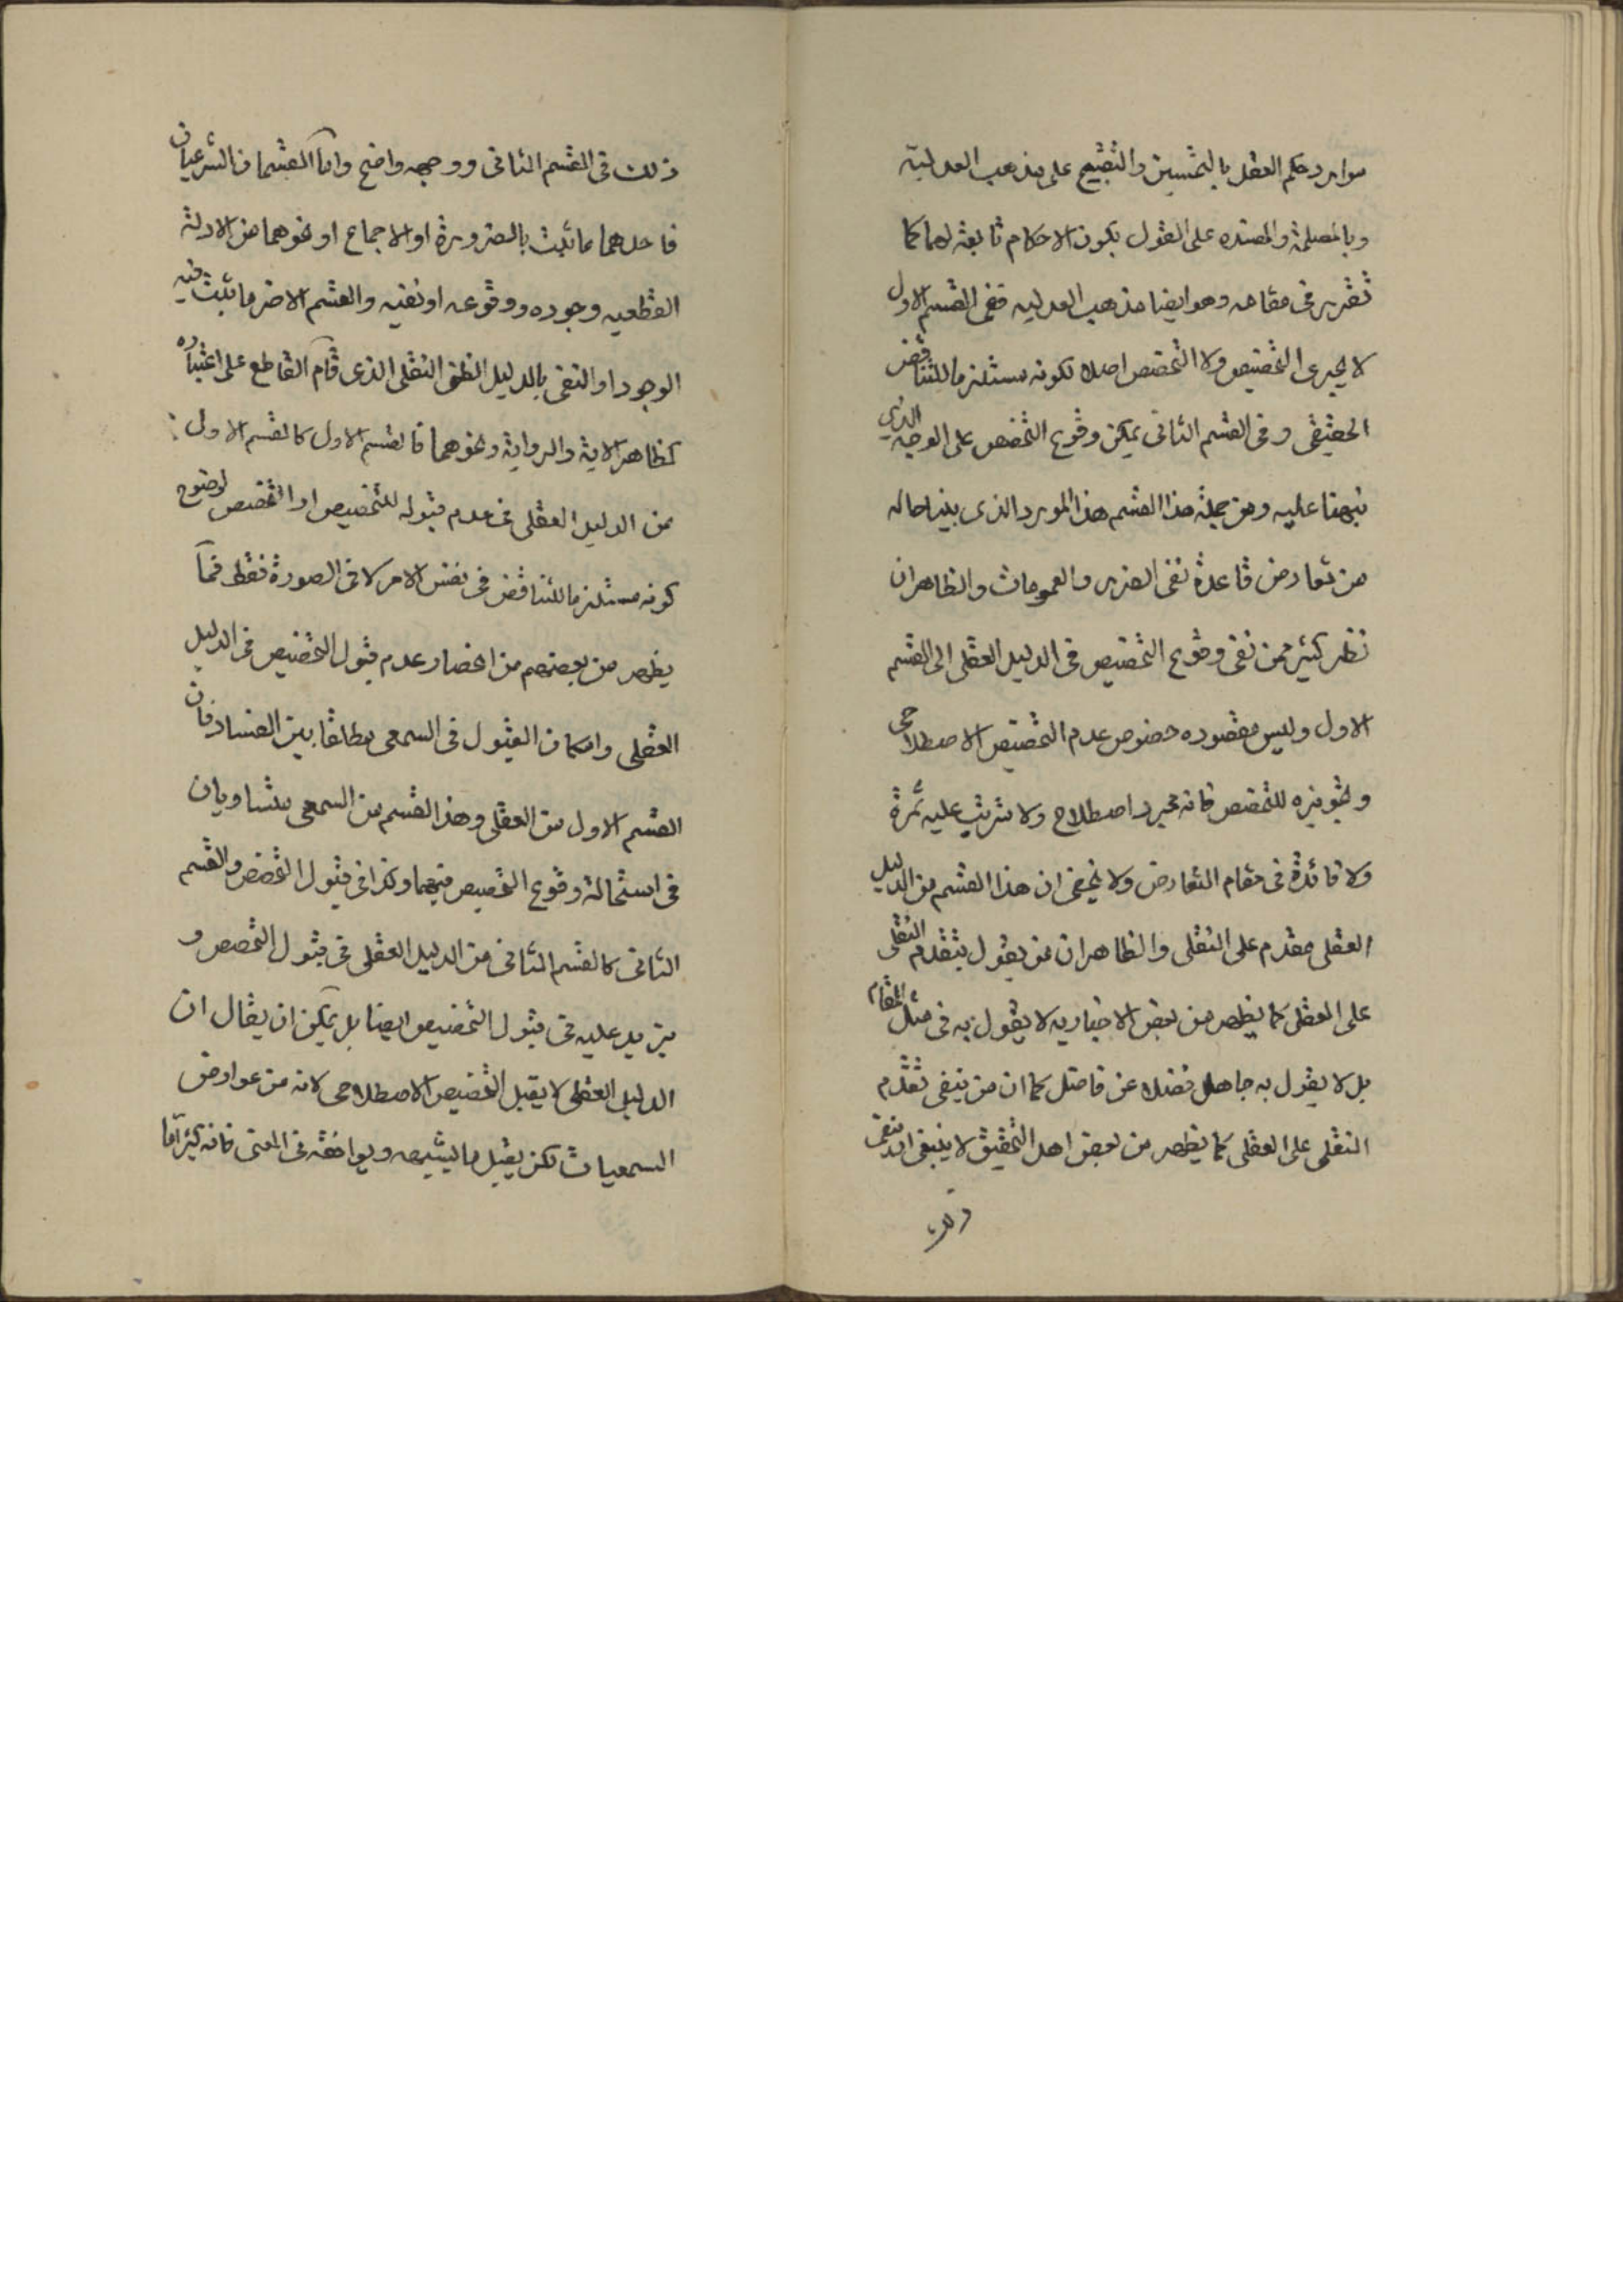 موارد حكم العقل بالتحسين والتقبيح على مذهب العدلية
وبالمصلحة والمفسده على القول بكون الاحكام تابعة لهما كما
تقرر فى مقامه وهو ايضا مذهب العدليه ففى القسم الاول
لا يجرى التخصيص ولا التخصص اصلا لكونه مستلزما للتناقض
الحقيقى وفى القسم الثانى يمكن وقوع التخصص على الوجه الذى
نبهنا عليه ومن جملة هذا القسم هذا المورد الذى بينا حاله
من تعارض قاعدة نفى الضرر والعمومات والظاهر ان
نظر كثير ممن نفى وقوع التخصيص فى الدليل العقلى الى القسم
الاول وليس مقصوده خصوص عدم التخصيص الاصطلاحى
وتجويزه للتخصص فانه مجرد اصطلاح ولا تترتب عليه ثمرة
ولا فائدة فى مقام التعارض ولا يخفى ان هذا القسم من الدليل
العقلى مقدم على النقلى والظاهر ان من يقول بتقدم النقلى
على العقلى كما يظهر من بعض الاخباريه لا يقول به فى مثل المقام
بل لا يقول به جاهل فضلا عن فاضل كما ان من ينفى تقدم
النقلى على العقلى كما يظهر من بعض اهل التحقيق لا ينبغى ان ينفى
ذلك
ذلك فى القسم الثانى ووجهه واضح واما القسمان الشرعيان
فاحدهما ما ثبت بالضرورة او الاجماع او نحوهما من الادلة
القطعيه وجوده ووقوعه او نفيه والقسم الاخر ما ثبت فيه
الوجود او النفى بالدليل الظنى النقلى الذى قام القاطع على اعتباره
كظاهر الاية والرواية ونحوهما فالقسم الاول كالقسم الاول
من الدليل العقلى فى عدم قبوله للتخصيص او التخصص لوضوح
كونه مستلزما للتناقض فى نفس الامر لا فى الصورة فقط فما
يظهر من بعضهم من انحصار عدم قبول التخصيص فى الدليل
العقلى وامكان القبول فى السمعى مطلقا بين الفساد فان
القسم الاول من العقلى وهذا القسم من السمعى متساويان
فى استحالة وقوع التخصيص فيهما وكذا فى قبول التخصص والقسم
الثانى كالقسم الثانى من الدليل العقلى فى قبول التخصص و
يزيد عليه فى قبول التخصيص ايضا بل يمكن ان يقال ان
الدليل العقلى لا يقبل التخصيص الاصطلاحى لانه من عوارض
السمعيات لكن يقبل ما يشبهه ويوافقه فى المعنى فانه كثيرا ما